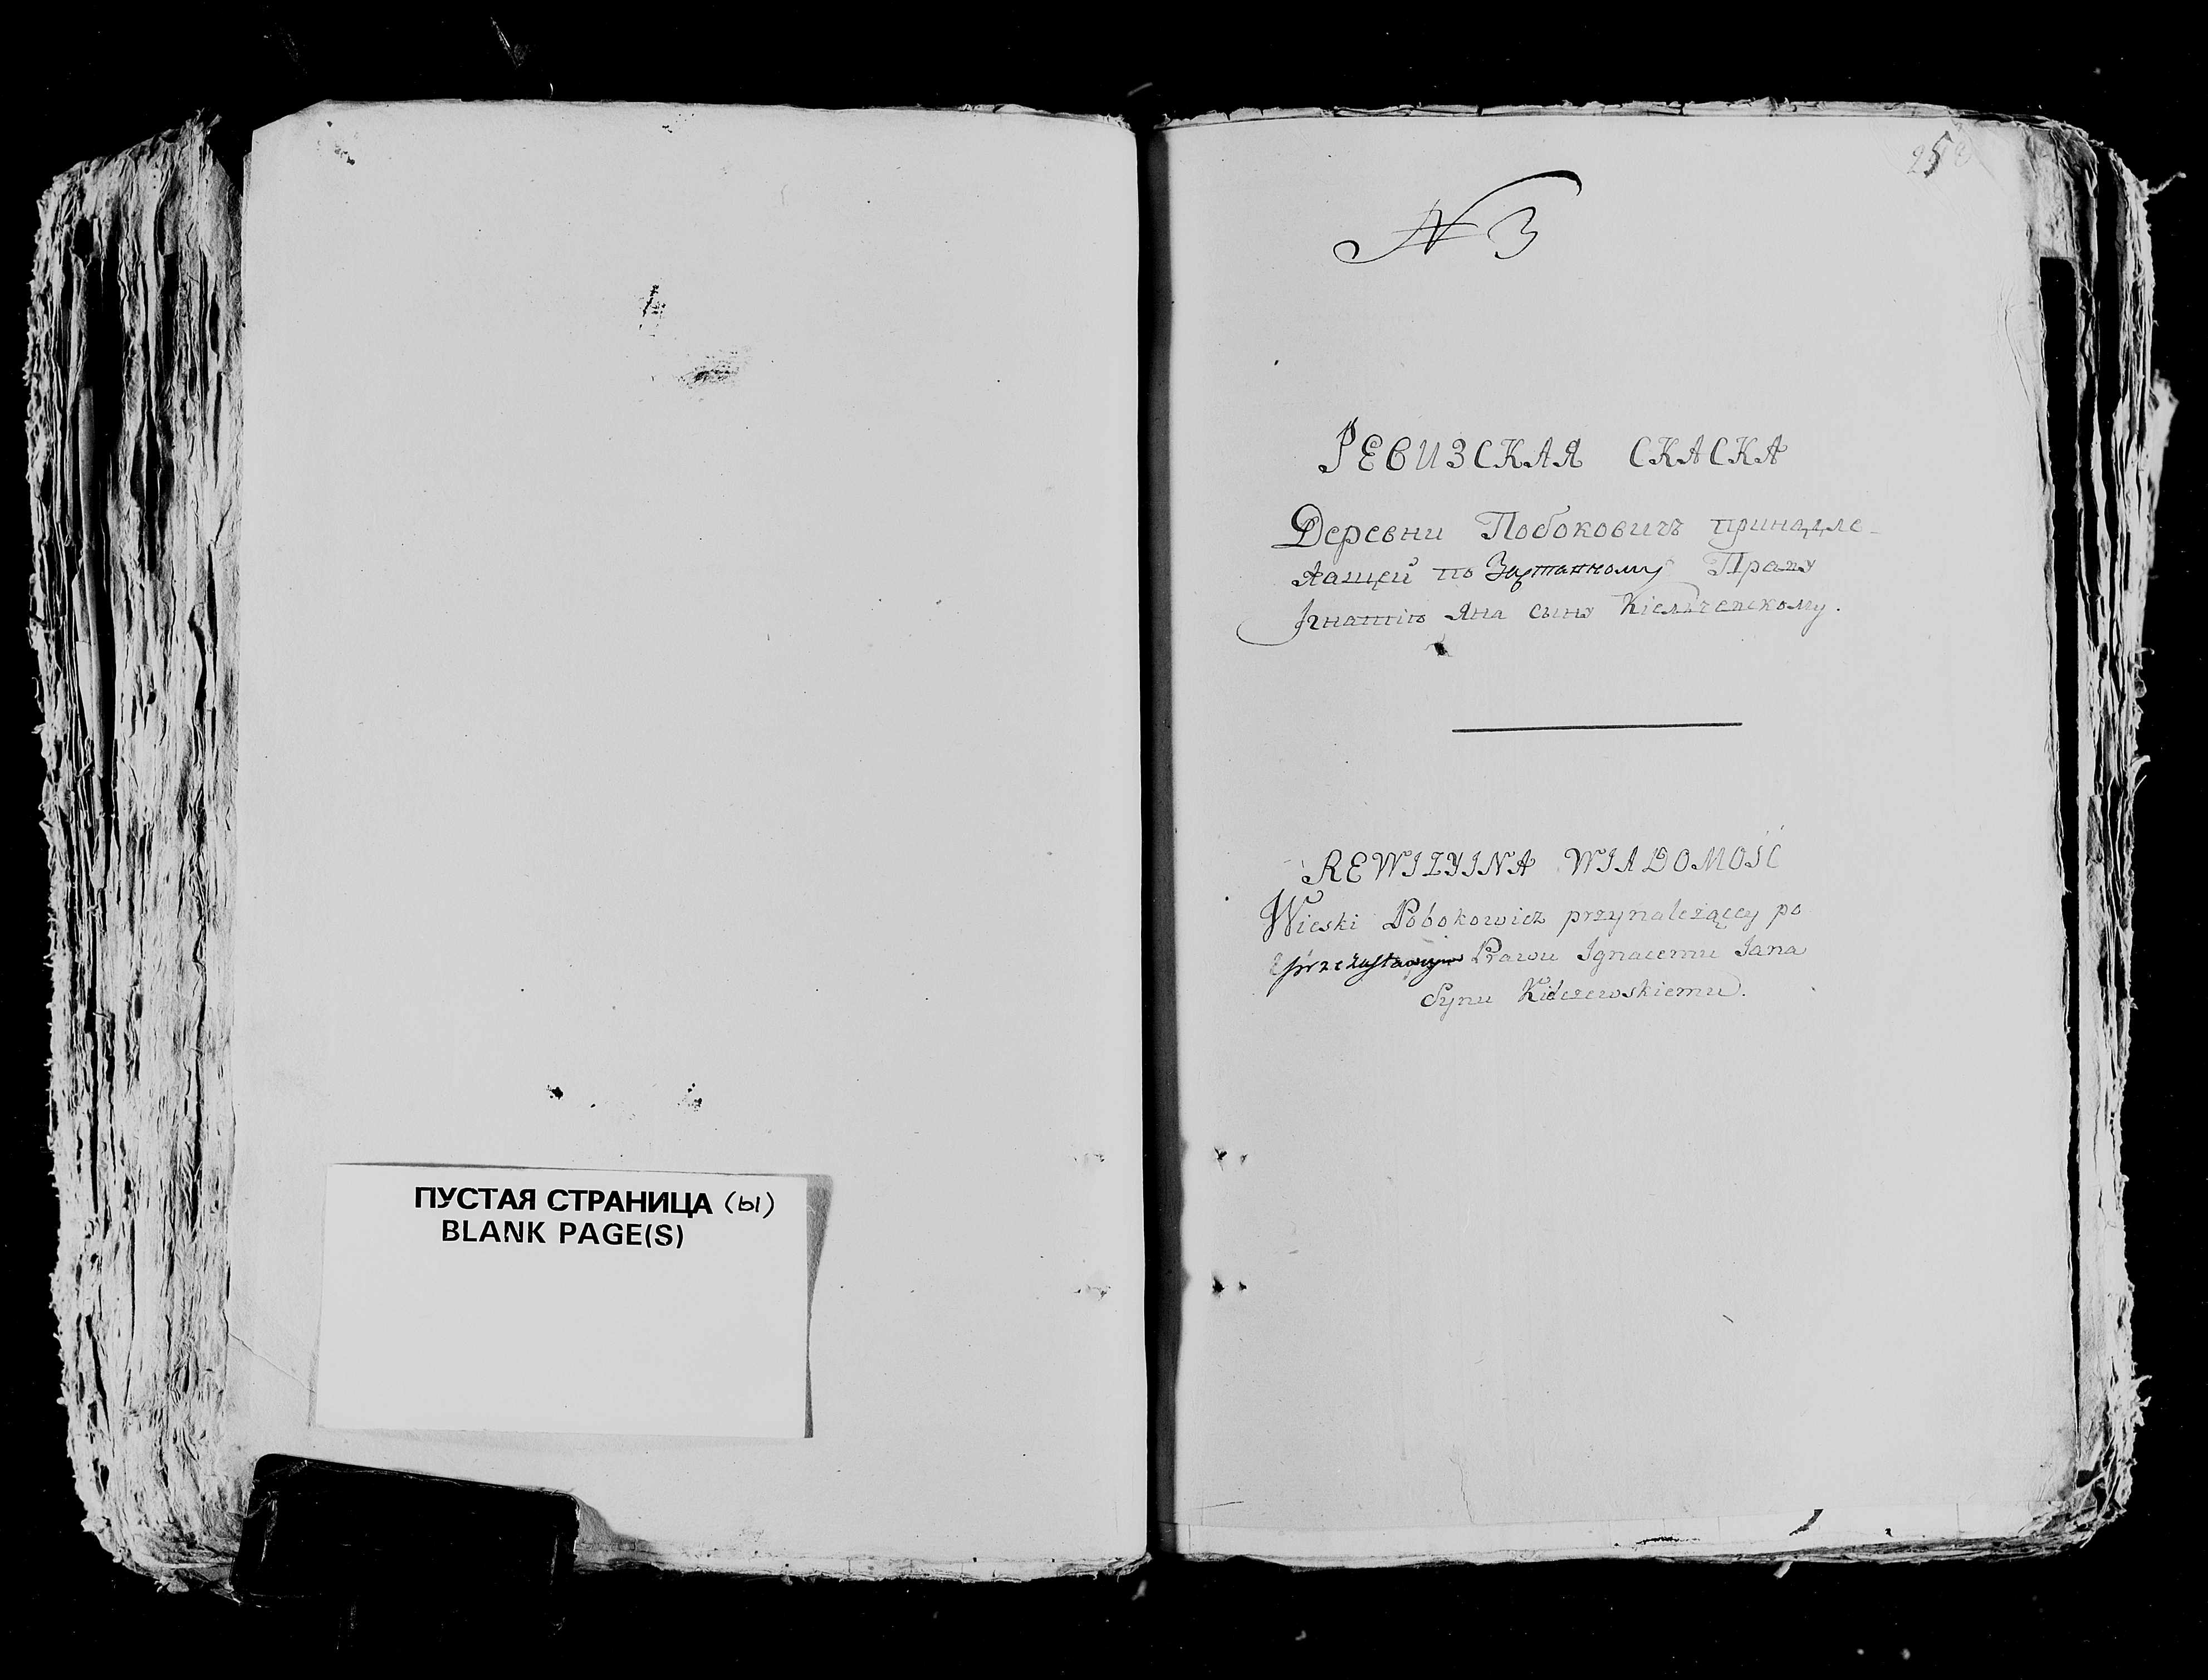 ПУСТАЯ СТРАНИЦА (ы)
BLANK PAGE(S)
N 3
РЕВИЗСКАЯ СКАСКА
Деревни Побоковичъ принадле-
жащей по Заставному Праву
Игнатію Яна сыну Кіельчевскому.
REWIZYINA WIADOMOŚĆ
Wioski Pobokowicz przynależącey po
Prawu Ignacemu Jana
Synu Kielczewskiemu.